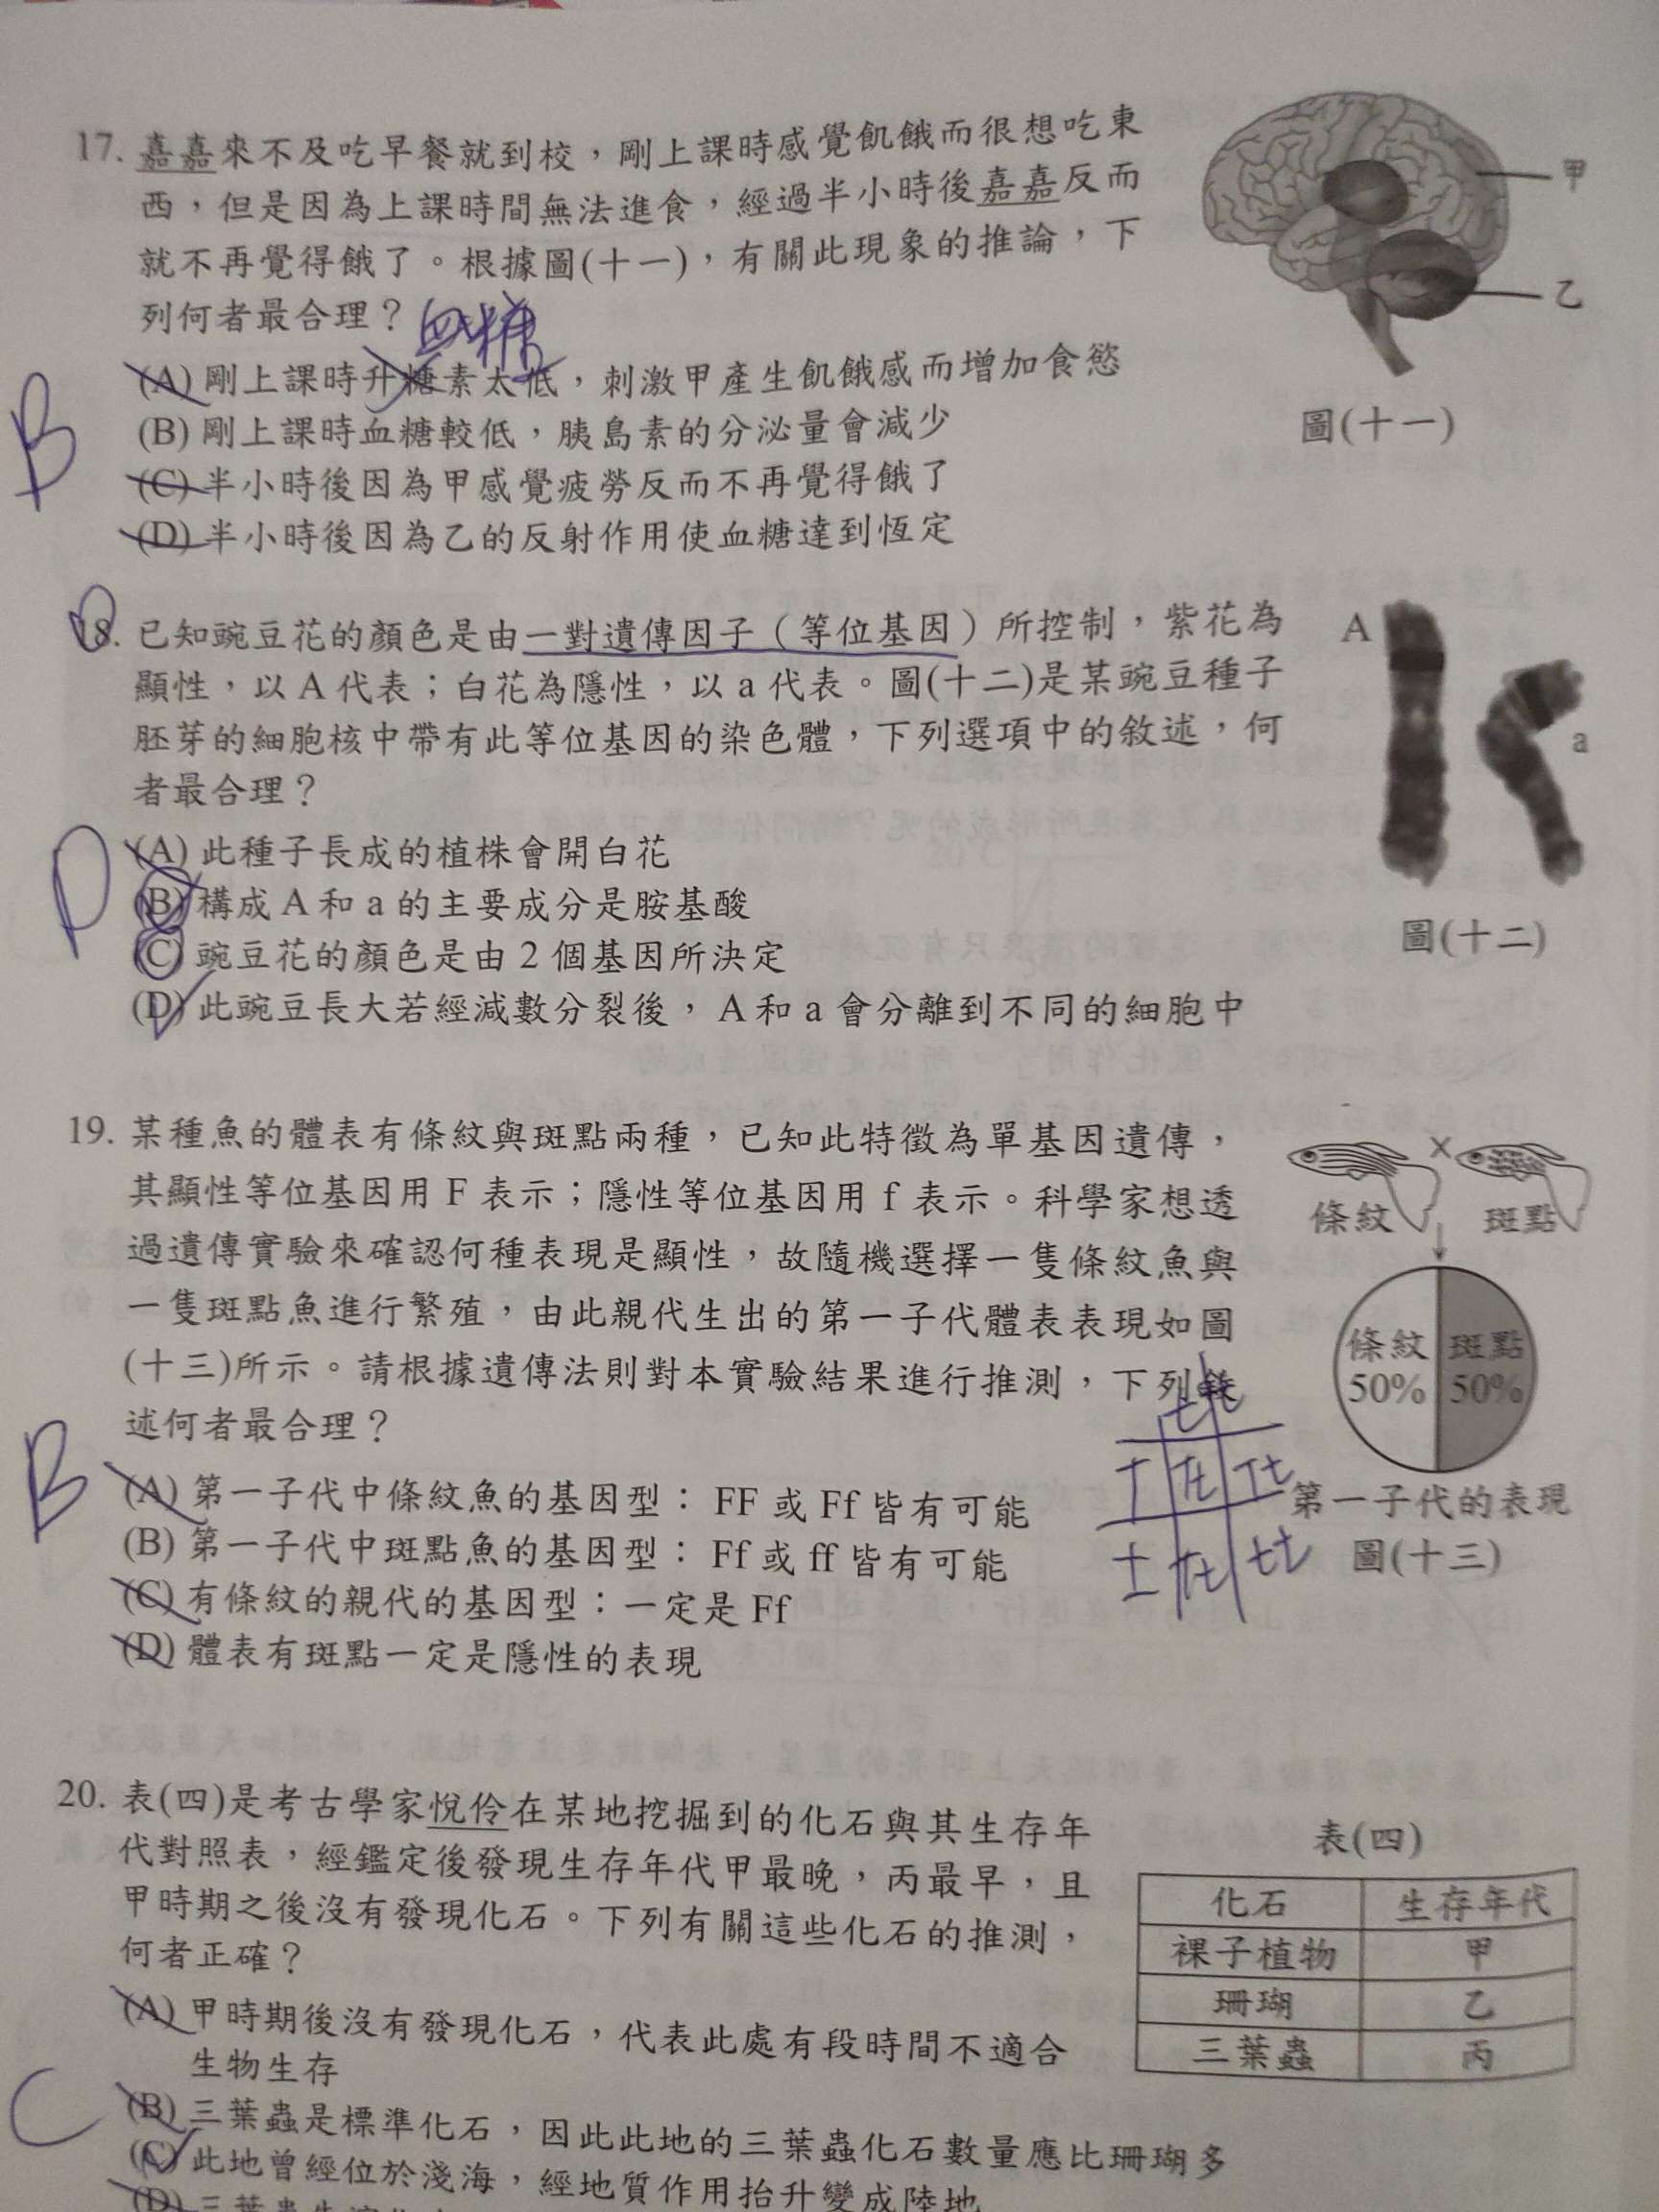 17. 嘉嘉來不及吃早餐就到校，剛上課時感覺飢餓而很想吃東
西，但是因為上課時間無法進食，經過半小時後嘉嘉反而
就不再覺得餓了。根據圖(十一)，有關此現象的推論，下
列何者最合理？
血糖
(A) 剛上課時升糖素太低，刺激甲產生飢餓感而增加食慾
(B) 剛上課時血糖較低，胰島素的分泌量會減少
(C) 半小時後因為甲感覺疲勞反而不再覺得餓了
(D) 半小時後因為乙的反射作用使血糖達到恆定
B
甲
乙
圖(十一)
18. 已知豌豆花的顏色是由一對遺傳因子（等位基因）所控制，紫花為
顯性，以 A 代表；白花為隱性，以 a 代表。圖(十二)是某豌豆種子
胚芽的細胞核中帶有此等位基因的染色體，下列選項中的敘述，何
者最合理？
(A) 此種子長成的植株會開白花
(B) 構成 A 和 a 的主要成分是胺基酸
(C) 豌豆花的顏色是由 2 個基因所決定
(D) 此豌豆長大若經減數分裂後，A 和 a 會分離到不同的細胞中
D
A
a
圖(十二)
19. 某種魚的體表有條紋與斑點兩種，已知此特徵為單基因遺傳，
其顯性等位基因用 F 表示；隱性等位基因用 f 表示。科學家想透
過遺傳實驗來確認何種表現是顯性，故隨機選擇一隻條紋魚與
一隻斑點魚進行繁殖，由此親代生出的第一子代體表表現如圖
(十三)所示。請根據遺傳法則對本實驗結果進行推測，下列敘
述何者最合理？
(A) 第一子代中條紋魚的基因型：FF 或 Ff 皆有可能
(B) 第一子代中斑點魚的基因型：Ff 或 ff 皆有可能
(C) 有條紋的親代的基因型：一定是 Ff
(D) 體表有斑點一定是隱性的表現
B
×
條紋
斑點
條紋 斑點
50% 50%
第一子代的表現
圖(十三)
t t
T Tt Tt
tt
20. 表(四)是考古學家悅伶在某地挖掘到的化石與其生存年
代對照表，經鑑定後發現生存年代甲最晚，丙最早，且
甲時期之後沒有發現化石。下列有關這些化石的推測，
何者正確？
(A) 甲時期後沒有發現化石，代表此處有段時間不適合
生物生存
(B) 三葉蟲是標準化石，因此此地的三葉蟲化石數量應比珊瑚多
(C) 此地曾經位於淺海，經地質作用抬升變成陸地
(D) 三葉蟲
C
表(四)
化石 生存年代
裸子植物 甲
珊瑚 乙
三葉蟲 丙